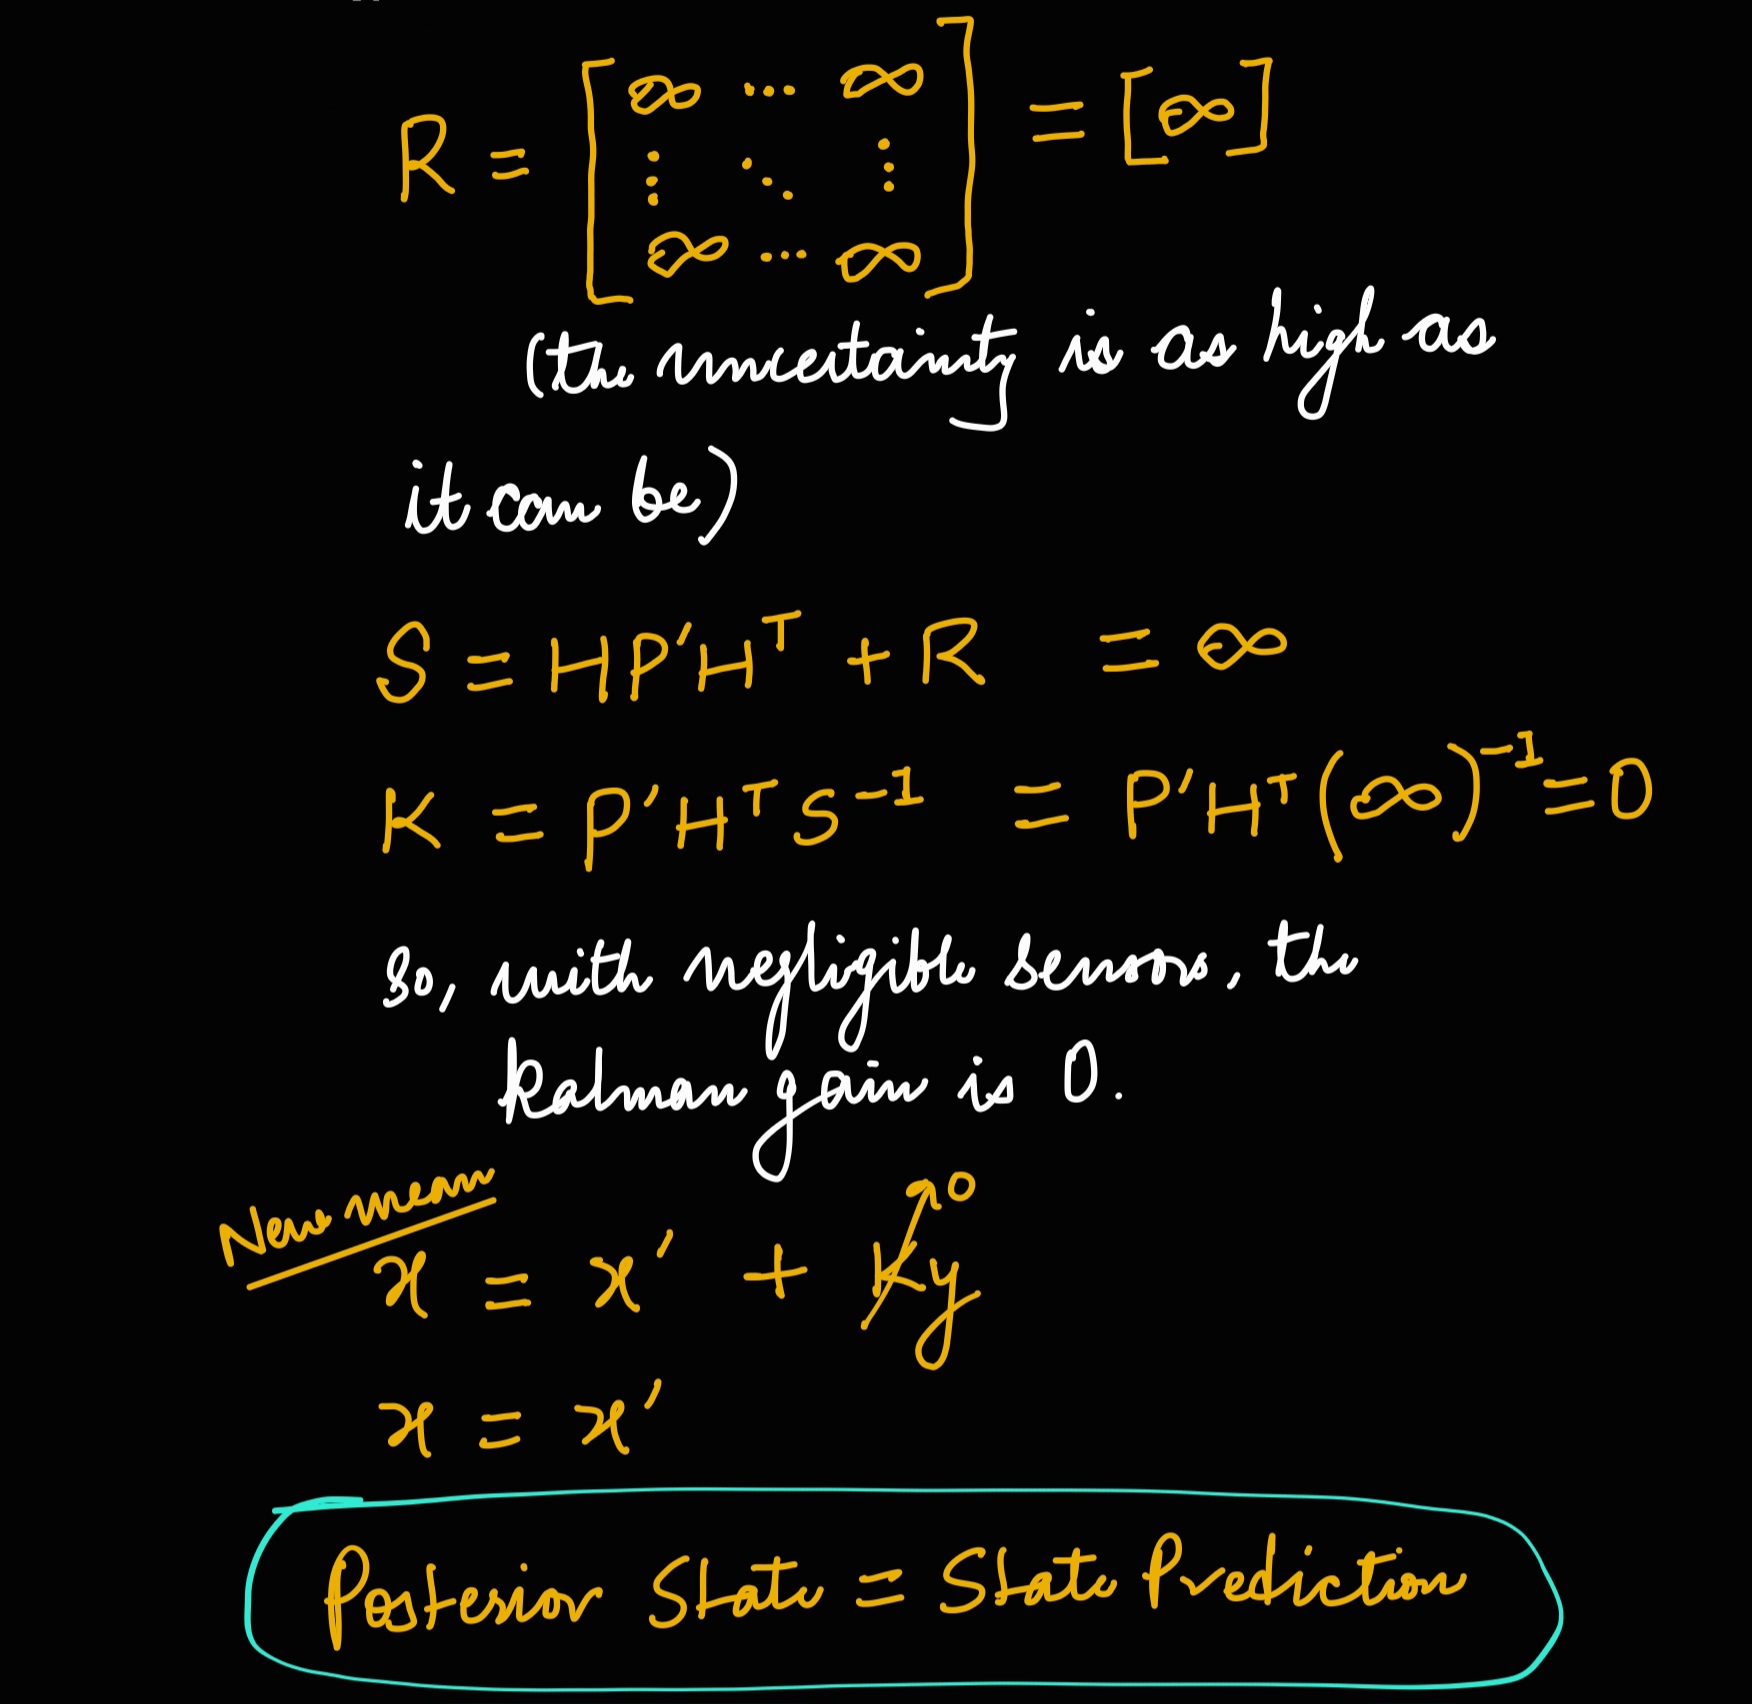 R = [∞ ... ∞ ⋮ ⋱ ⋮ ∞ ... ∞] = [∞]
(the uncertainty is as high as
it can be)
S = HP'Hᵀ + R = ∞
K = P'HᵀS⁻¹ = P'Hᵀ(∞)⁻¹ = 0
So, with negligible sensors, the
kalman gain is 0.
New mean
x = x' + Ky 0
x = x'
Posterior State = State Prediction